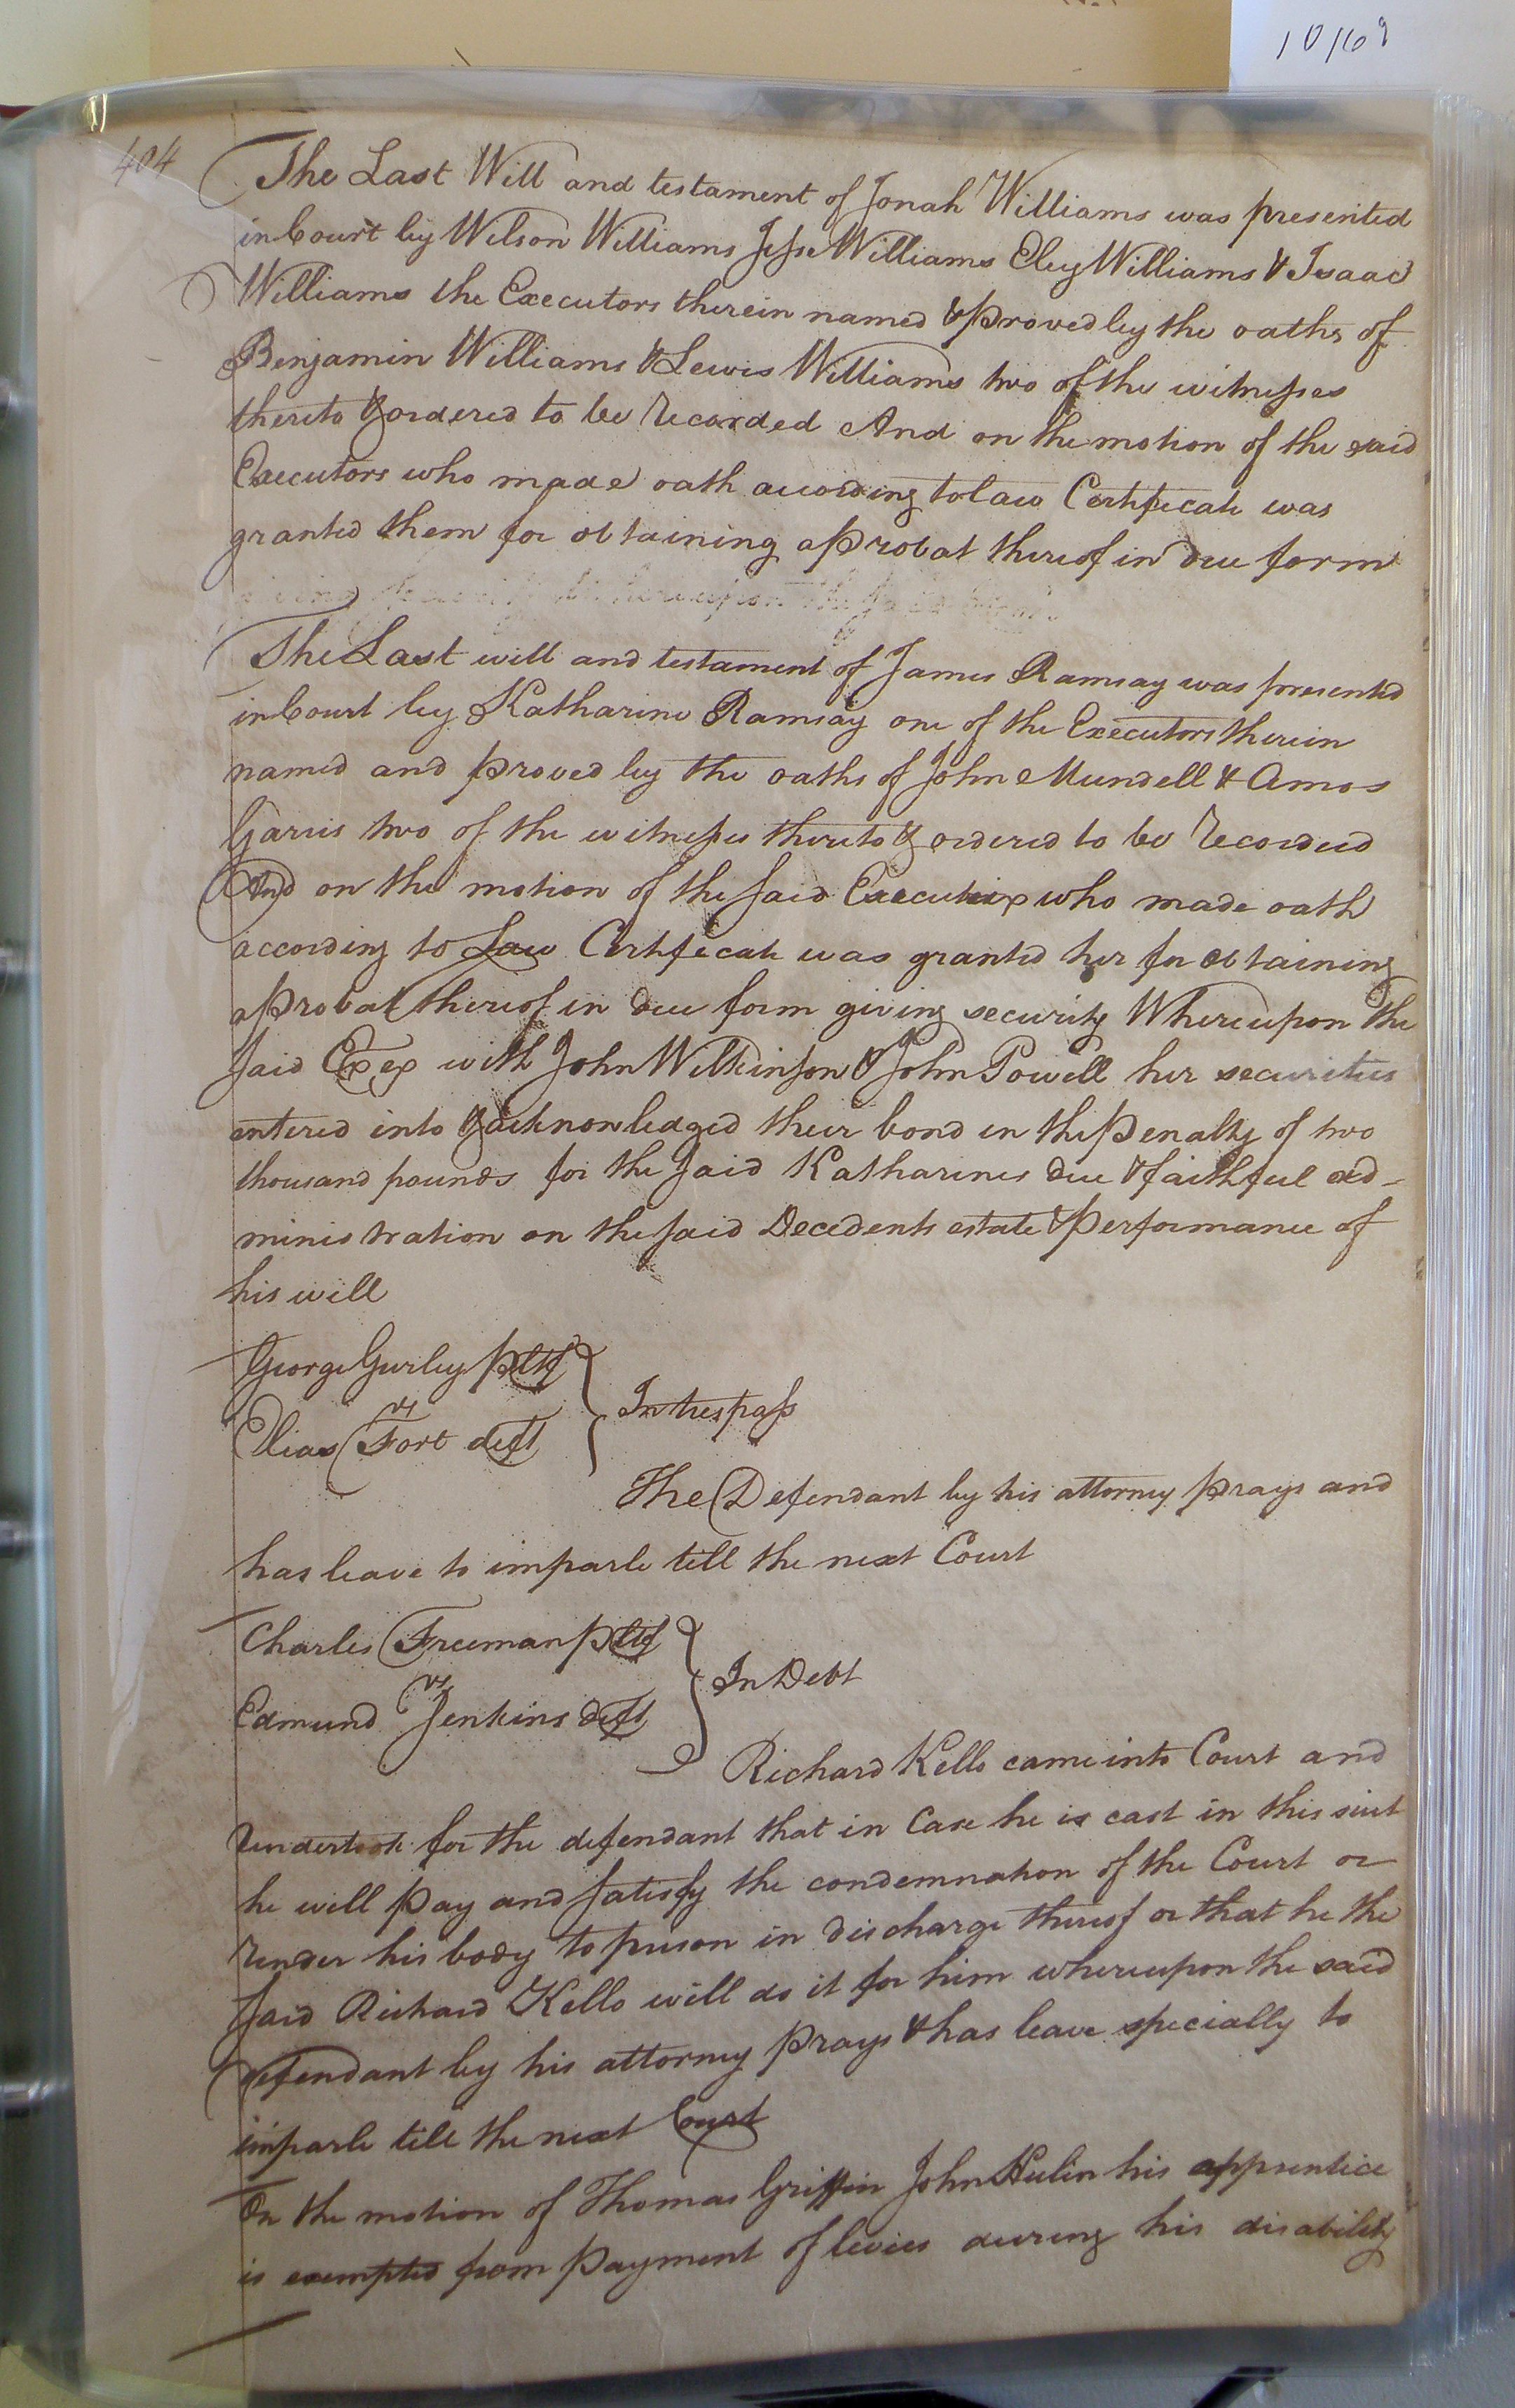 10/69
404
The Last Will and testament of Jonah Williams was presented
in Court by Wilson Williams Jesse Williams Eley Williams & Isaac
Williams the Executors therein named & proved by the oaths of
Benjamin Williams & Lewis Williams two of the witnesses
thereto & ordered to be Recorded And on the motion of the said
Executors who made oath according to law Certificate was
granted them for obtaining a probat thereof in due form
The Last will and testament of James Ramsay was presented
in Court by Katharine Ramsay one of the Executors therein
named and proved by the oaths of John Mundell & Amos
Garris two of the witnesses thereto & ordered to be Recorded
And on the motion of the said Executrix who made oath
according to Law Certificate was granted her for obtaining
a probat thereof in due form giving security Whereupon the
said Exex with John Wilkinson & John Powell her securities
entered into & acknowledged their bond in the penalty of two
thousand pounds for the said Katharines due & faithful ad-
ministration on the said Decedents estate & performance of
his will
George Gurley pltf
vs
In trespass
Elias Fort deft
The Defendant by his attorney prays and
has leave to imparle till the next Court
Charles Freeman pltf
vs
In Debt
Edmund Jenkins deft
Richard Kello came into Court and
undertook for the defendant that in Case he is cast in this suit
he will pay and satisfy the condemnation of the Court or
render his body to prison in discharge thereof or that he the
said Richard Kello will do it for him whereupon the said
defendant by his attorney prays & has leave specially to
imparle till the next Court
On the motion of Thomas Griffin John Hulin his apprentice
is exempted from payment of levies during his disability